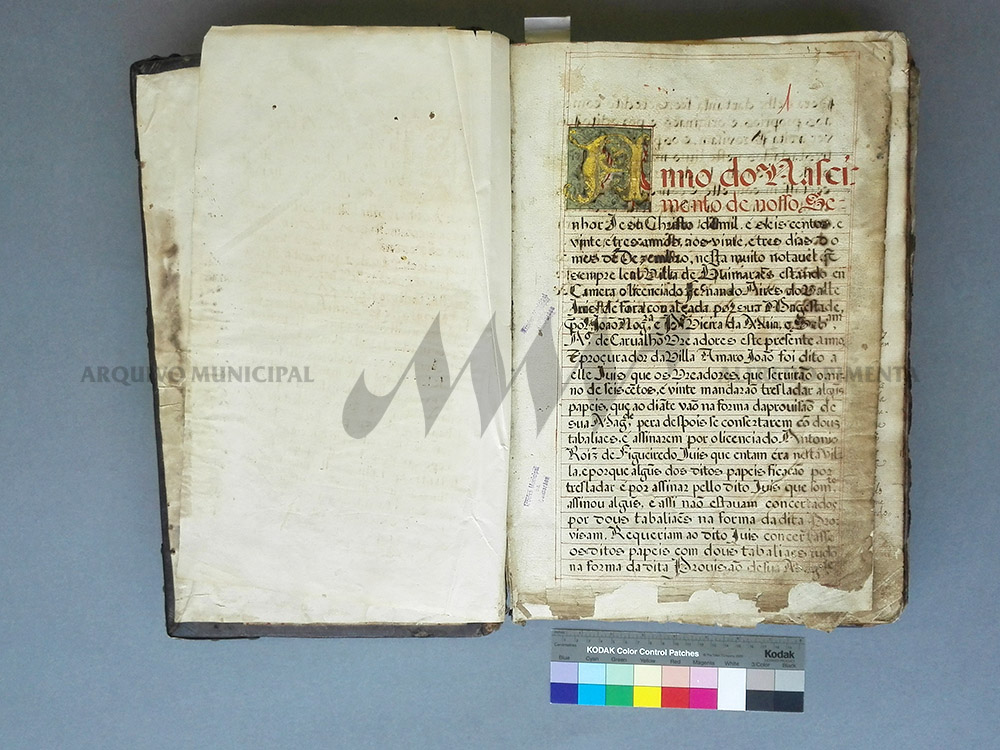 Anno do Nasci-
mento de nosso Se-
nhor Jesu Christo de mil e seis centos e
vinte e tres annos, aos vinte e tres dias do
mes de Dezembro, nesta muito notauel e
sempre leal Villa de Guimarães estando em
Camera o licenciado Fernando Aires do Valle
Juis de fora com alçada por sua Magestade,
João Nog.ra e P.o Vieira da
de Carvalho Vreadores este presente anno
E procurador da Villa Amaro João foi dito a
elle Juis que os Vreadores que seruirão o an-
no de seis cẽtos, e vinte mandarão tresladar algũs
papeis, que ao diãte vão na forma da prouisão de
sua Mag.de pera despois se consertarem cõ dous
tabaliães, e assinarem por o licenciado Antonio
Roiz de Figueiredo Juis que entam era nesta Vil-
la, e porque algũs dos ditos papeis ficação por
tresladar e por assinar pello dito Juis que som.te
assinou algũs, e assi não estauam concertados
por dous tabaliães na forma da dita Pro-
visam. Requeriam ao dito Juis concertasse
os ditos papeis com dous tabaliaes tudo
na forma da dita Prouisão de sua
ARQUIVO MUNICIPAL
MENTA
KODAK Color Control Patches
Kodak
Blue Cyan Green Yellow Red Magenta White 3/Color Black